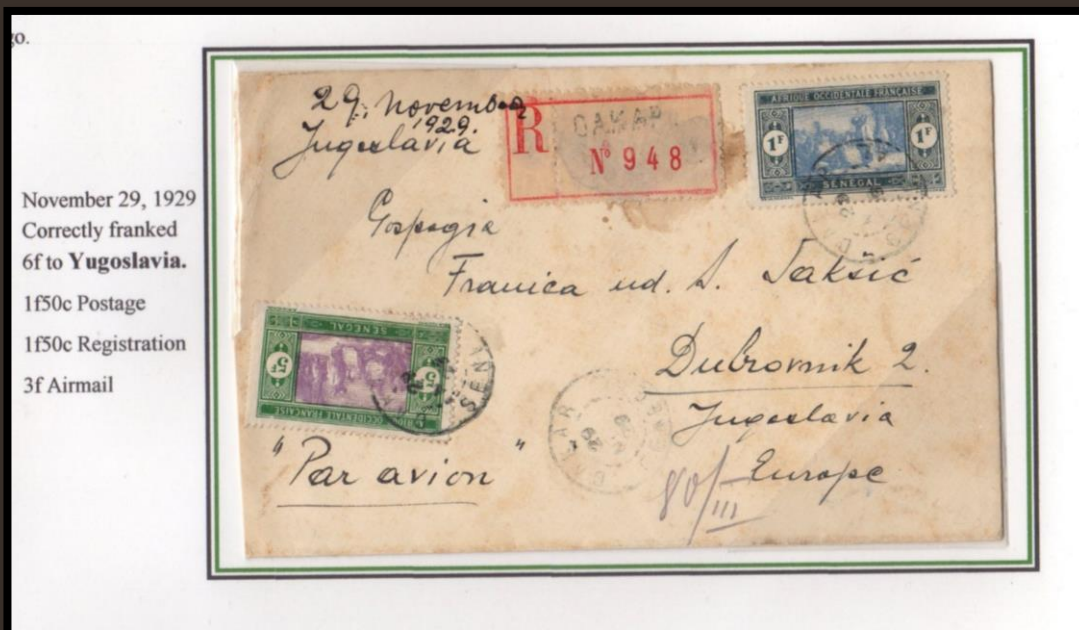 go.
November 29, 1929
Correctly franked
6f to Yugoslavia.
1f50c Postage
1f50c Registration
3f Airmail
29. November
1929.
Jugoslavia
R
DAKAR
Nº 948
AFRIQUE OCCIDENTALE FRANÇAISE
1F 1F
SENEGAL
Gospogja
Franica ud. S. Sakšić
Dubrovnik 2.
Jugoslavia
Europe
SENEGAL
5F 5F
AFRIQUE OCCIDENTALE FRANÇAISE
DAKAR
29
"Par avion"
80/III